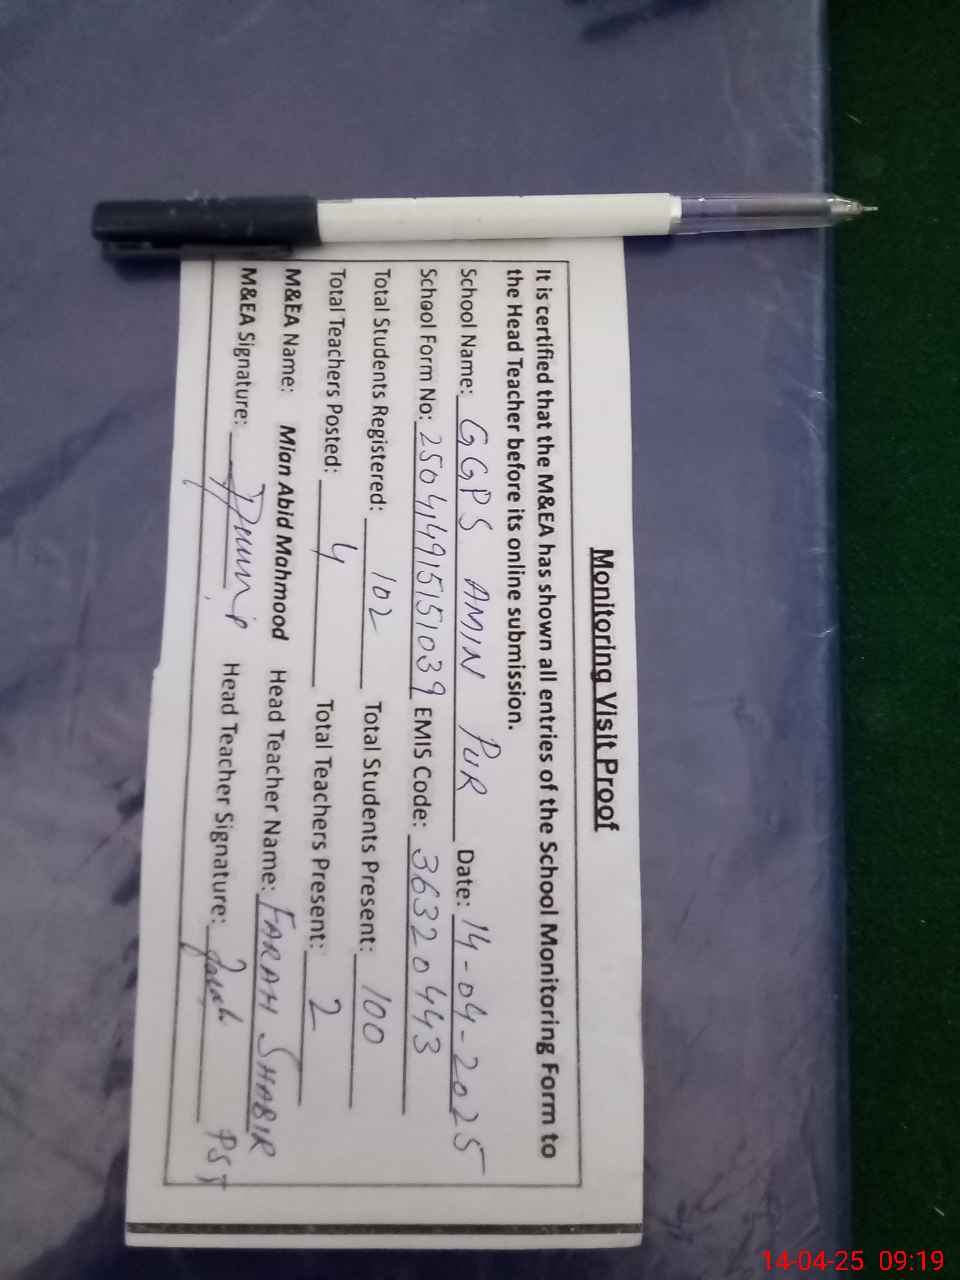 Monitoring Visit Proof
It is certified that the M&EA has shown all entries of the School Monitoring Form to
the Head Teacher before its online submission.
School Name: GGPS AMIN PUR Date: 14-04-2025
School Form No: 250414915151039 EMIS Code: 36320443
Total Students Registered: 102 Total Students Present: 100
Total Teachers Posted: 4 Total Teachers Present: 2
M&EA Name: Mian Abid Mahmood Head Teacher Name: FARAH SHABIR
M&EA Signature: Head Teacher Signature: Farah PST
14-04-25 09:19